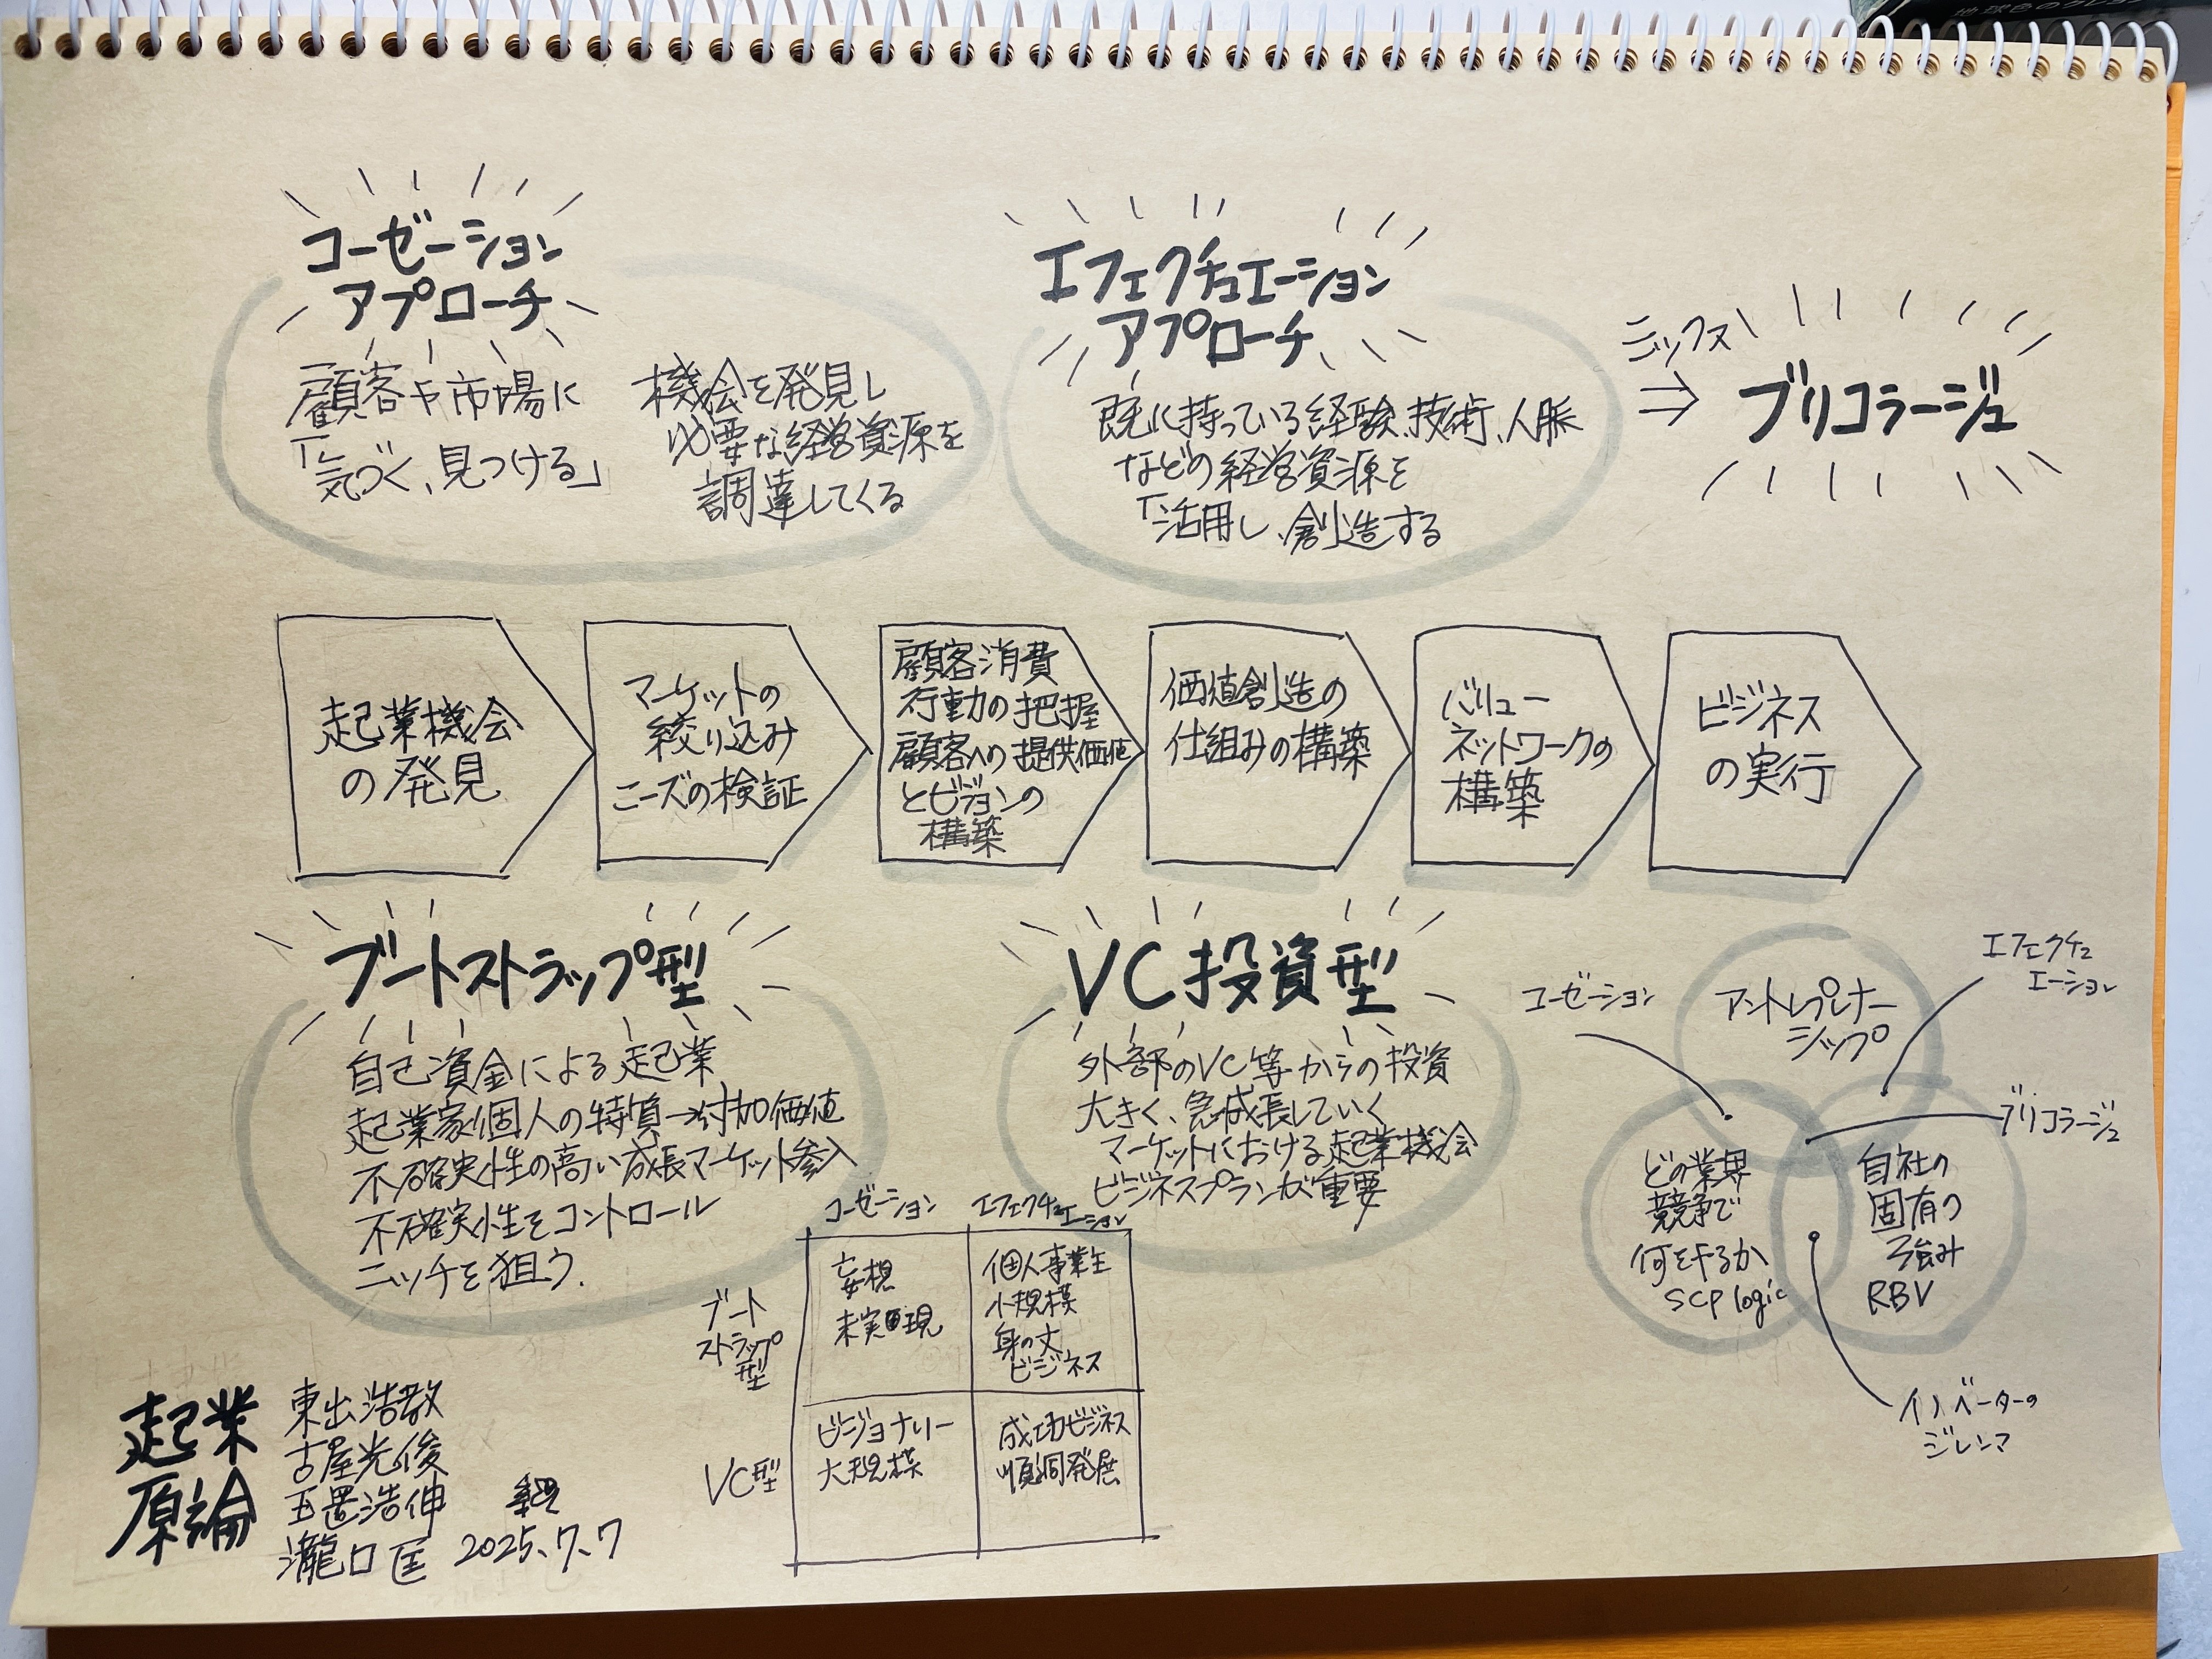 コーゼーション
アプローチ
顧客や市場に
「気づく、見つける」
機会を発見し
必要な経営資源を
調達してくる
エフェクチュエーション
アプローチ
既に持っている経験、技術、人脈
などの経営資源を
「活用し、創造する
ミックス
⇒
ブリコラージュ
起業機会
の発見
マーケットの
絞り込み
ニーズの検証
顧客消費
行動の把握
顧客への提供価値
とビジョンの
構築
価値創造の
仕組みの構築
バリュー
ネットワークの
構築
ビジネス
の実行
ブートストラップ型
自己資金による起業
起業家個人の特質→付加価値
不確実性の高い成長マーケット参入
不確実性をコントロール
ニッチを狙う.
VC投資型
外部のVC等からの投資
大きく、急成長していく
マーケットにおける起業機会
ビジネスプランが重要
コーゼーション
エフェクチュ
エーション
ブート
ストラップ
型
妄想
未実現
個人事業主
小規模
身の丈
ビジネス
VC型
ビジョナリー
大規模
成功ビジネス
順調発展
コーゼーション
アントレプレナー
シップ
エフェクチュ
エーション
ブリコラージュ
どの業界
競争で
何をやるか
SCP logic
自社の
固有の
強み
RBV
イノベーターの
ジレンマ
起業
原論
東出浩教
古屋光俊
玉置浩伸
瀧口匡
2025.7.7